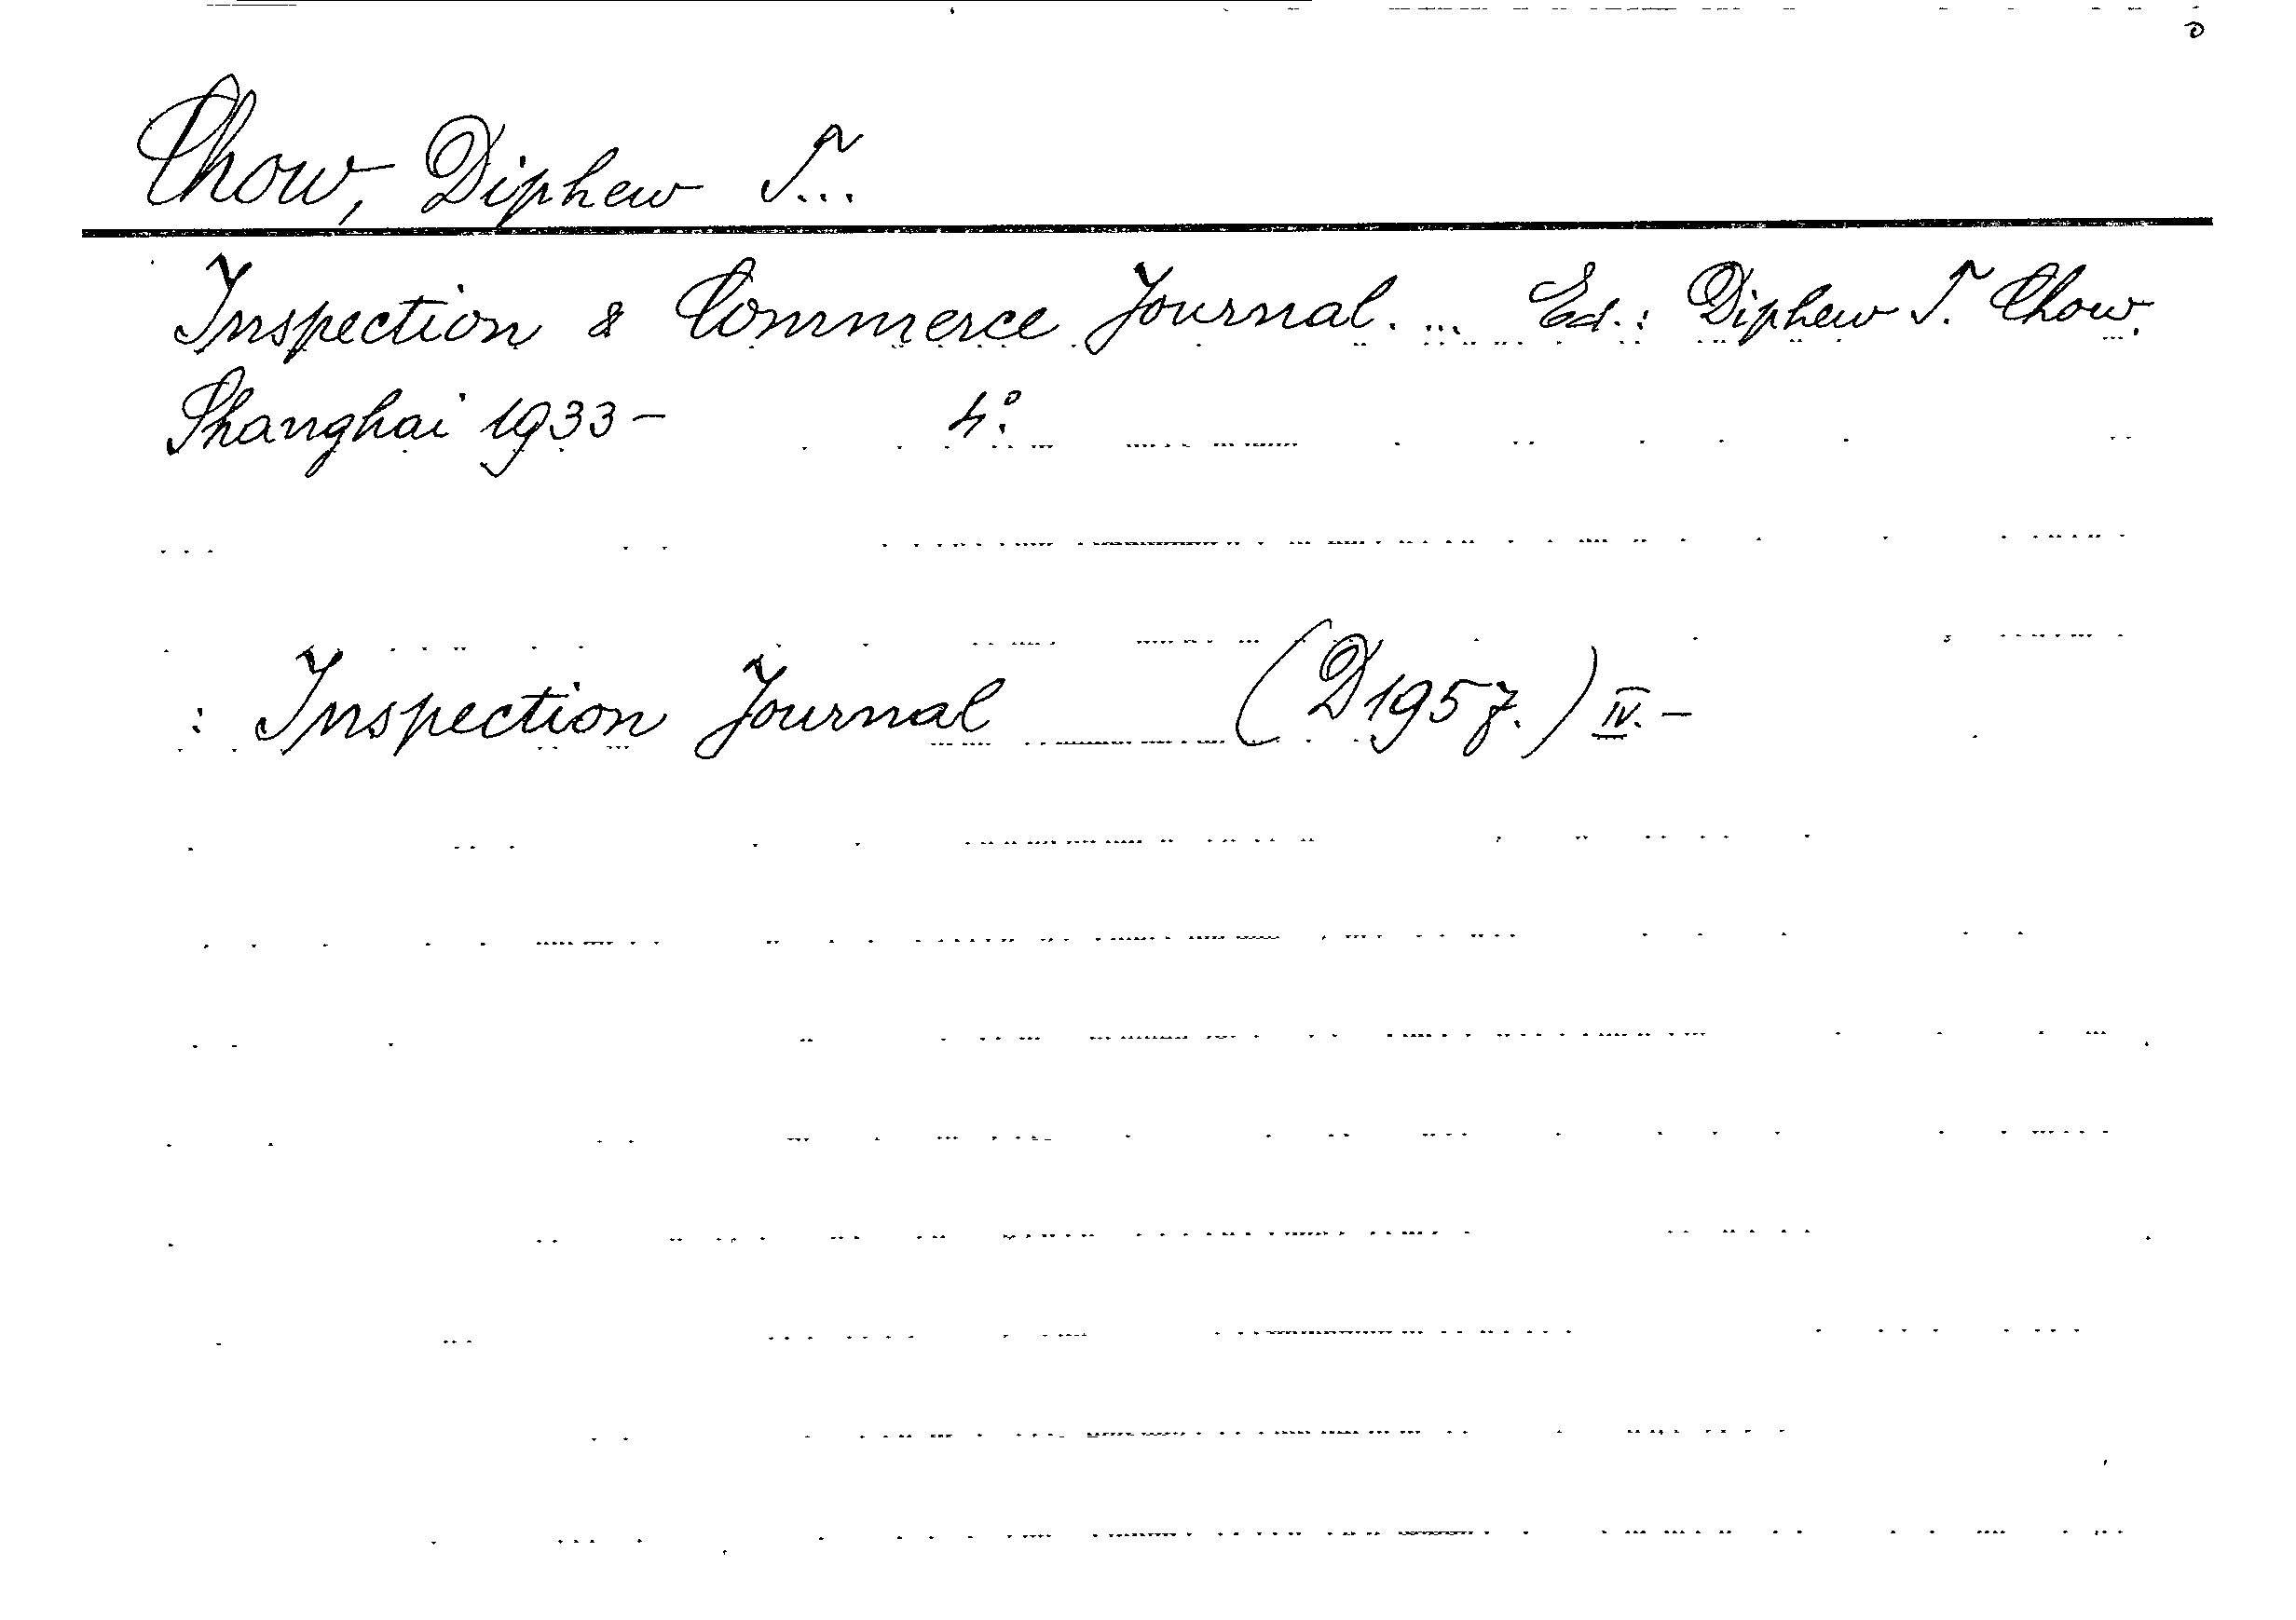 Chow, Diphew T...
Inspection & Commerce Journal. ... Ed.: Diphew T. Chow.
Shanghai 1933- 4°.
: Inspection Journal (D1957.) IV.-